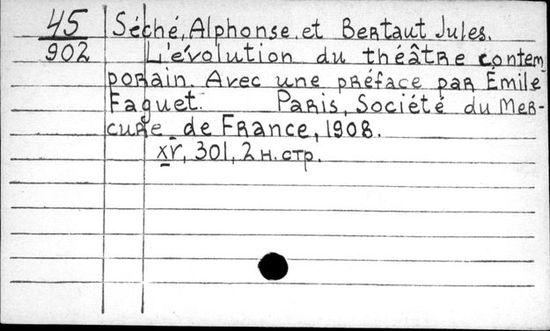 45
902
Séché, Alphonse, et Bertaut Jules.
L'évolution du théâtre contem
porain. Avec une préface par Émile
Faguet. Paris, Société du Mer-
cure de France, 1908.
xv, 301, 2 н. стр.